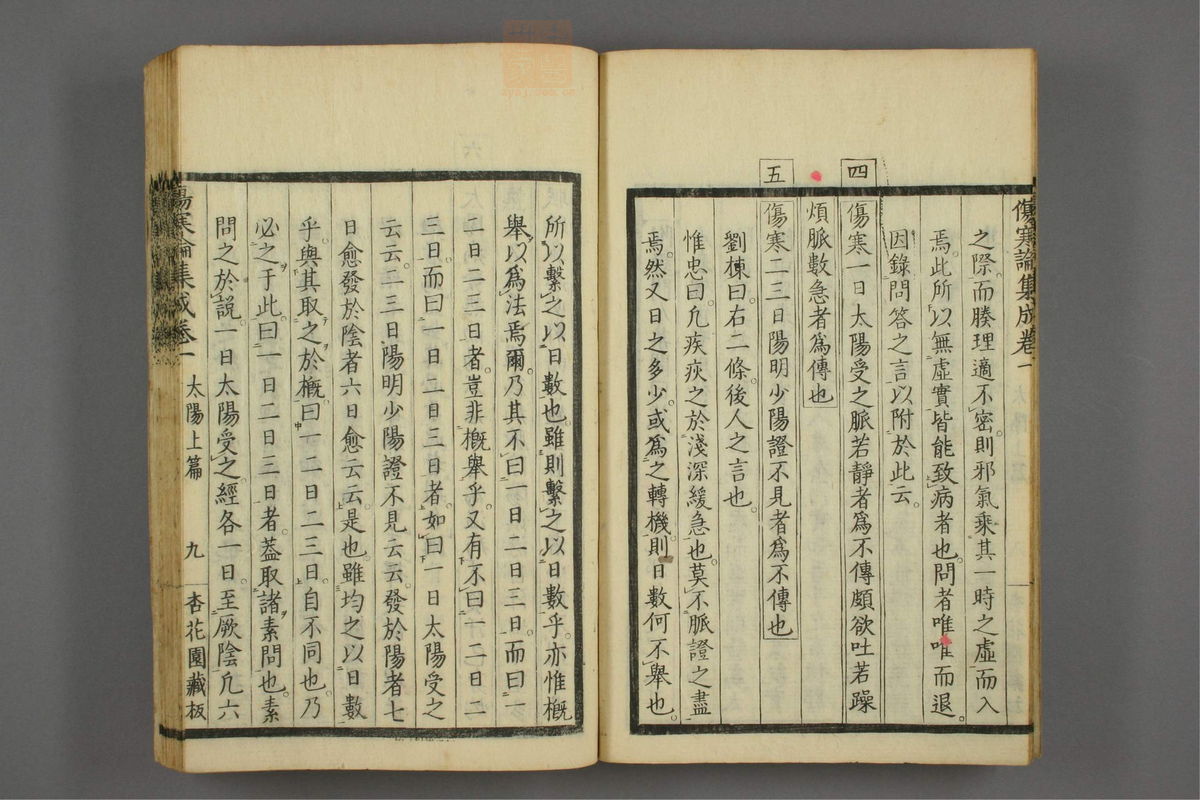 傷寒論集成卷一
之際而腠理適不密則邪氣乘其一時之虛而入
焉此所以無虛實皆能致病者也問者唯唯而退
因錄問答之言以附於此云
四
傷寒一日太陽受之脈若靜者爲不傳頗欲吐若躁
煩脈數急者爲傳也
五
傷寒二三日陽明少陽證不見者爲不傳也
劉棟曰右二條後人之言也
惟忠曰凢疾疢之於淺深緩急也莫不脈證之盡
焉然又日之多少或爲之轉機則日數何不舉也
所以繫之以日數也雖則繫之以日數乎亦惟概
舉以爲法焉爾乃其不曰一日二日三日而曰一
二日二三日者豈非概舉乎又有不曰一二日二
三日而曰一日二日三日者如曰一日太陽受之
云云二三日陽明少陽證不見云云發於陽者七
日愈發於陰者六日愈云云是也雖均之以日數
乎與其取之於概曰一二日二三日自不同也乃
必之于此曰一日二日三日者蓋取諸素問也素
問之於說一日太陽受之經各一日至厥陰凢六
傷寒論集成卷一
太陽上篇
九
杏花園藏板